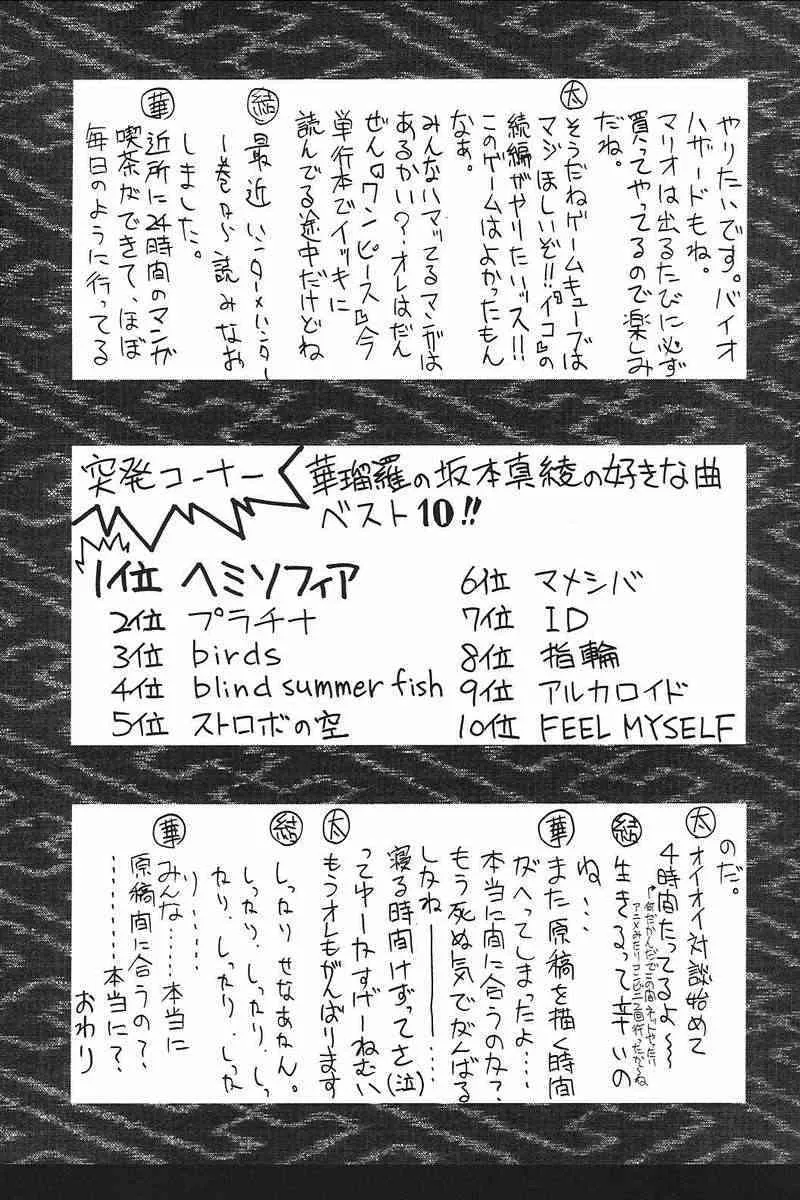 やりたいです。バイオ
ハザードもね。
マリオは出るたびに必ず
買ってやってるので楽しみ
だね。
太 そうだねゲームキューブは
マジほしいぞ!!『イコ』の
続編がやりたいッス!!
このゲームはよかったもん
なぁ。
みんなハマッてるマンガは
あるかい?オレはだん
ぜん『ワンピース』今
単行本でイッキに
読んでる途中だけどね
結 最近ハンター×ハンター
1巻から読みなお
しました。
華 近所に24時間のマンガ
喫茶ができて、ほぼ
毎日のように行ってる
突発コーナー
華瑠羅の坂本真綾の好きな曲
ベスト10!!
1位 ヘミソフィア
2位 プラチナ
3位 birds
4位 blind summer fish
5位 ストロボの空
6位 マメシバ
7位 ID
8位 指輪
9位 アルカロイド
10位 FEEL MYSELF
のだ。
太 オイオイ対談始めて
4時間たってるよ〜
何だかんだでこの間ネットやったり
アニメみたりコンビニ2回行ったからね
結 生きるって辛いの
ね…
華 また原稿を描く時間
がへってしまったよ…
本当に間に合うのか?
もう死ぬ気でがんばる
しかね――――…
寝る時間けずってさ(泣)
太 ってゆーかすげーねむい
もうオレもがんばります
結 しっかりせなあかん。
しっかり、しっかり、しっ
かり、しっかり、しっか
り……
華 みんな……本当に
原稿間に合うの?
………本当に?
おわり